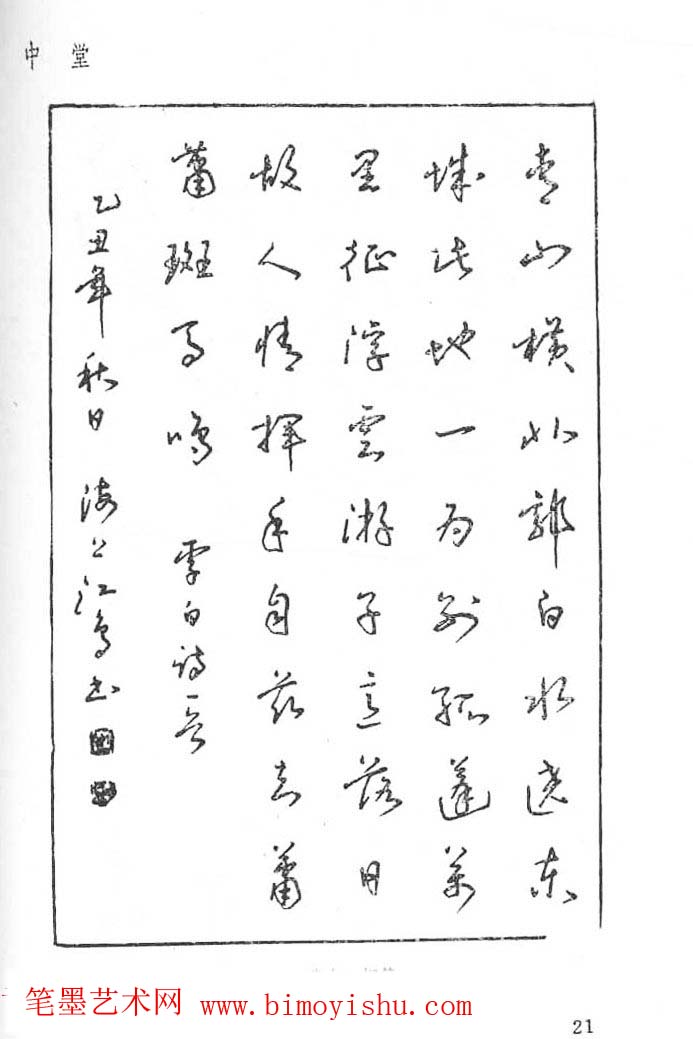 中堂
青山横北郭白水遶东
城此地一为别孤蓬萬
里征浮雲游子意落日
故人情揮手自兹去蕭
蕭斑马鸣 李白诗一首
乙丑年秋日 海上江鸟书
笔墨艺术网 www.bimoyishu.com
21